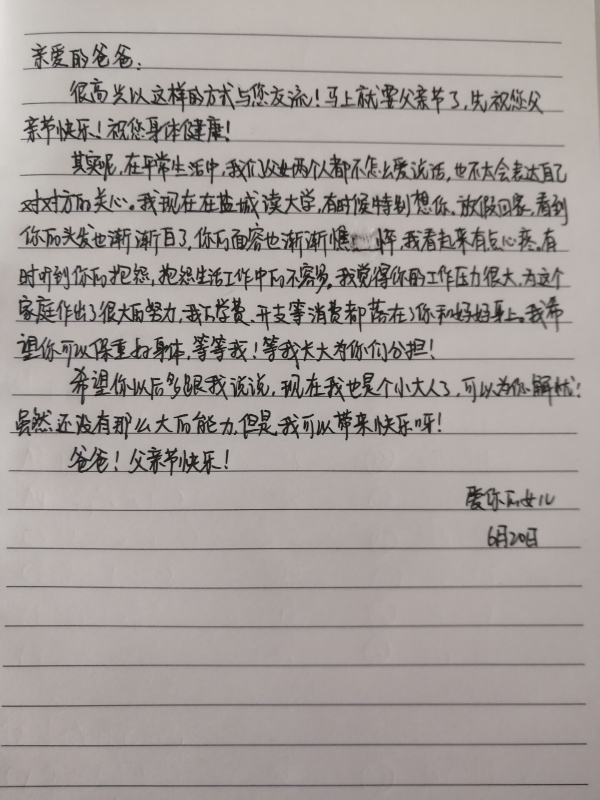 亲爱的爸爸：
很高兴以这样的方式与您交流！马上就要父亲节了，先祝您父
亲节快乐！祝您身体健康！
其实呢，在平常生活中，我们父女两个人都不怎么爱说话，也不太会表达自己
对对方的关心。我现在在盐城读大学，有时候特别想你。放假回家，看到
你的头发也渐渐白了，你的面容也渐渐憔悴，我看起来有点心疼。有
时听到你的抱怨，抱怨生活工作中的不容易。我觉得你的工作压力很大，为这个
家庭作出了很大的努力，我的学费、开支等消费都落在了你和妈妈身上。我希
望你可以保重好身体，等等我！等我长大为你们分担！
希望你以后多跟我说说，现在我也是个小大人了，可以为你解忧！
虽然还没有那么大的能力，但是，我可以带来快乐呀！
爸爸！父亲节快乐！
爱你的女儿
6月20日